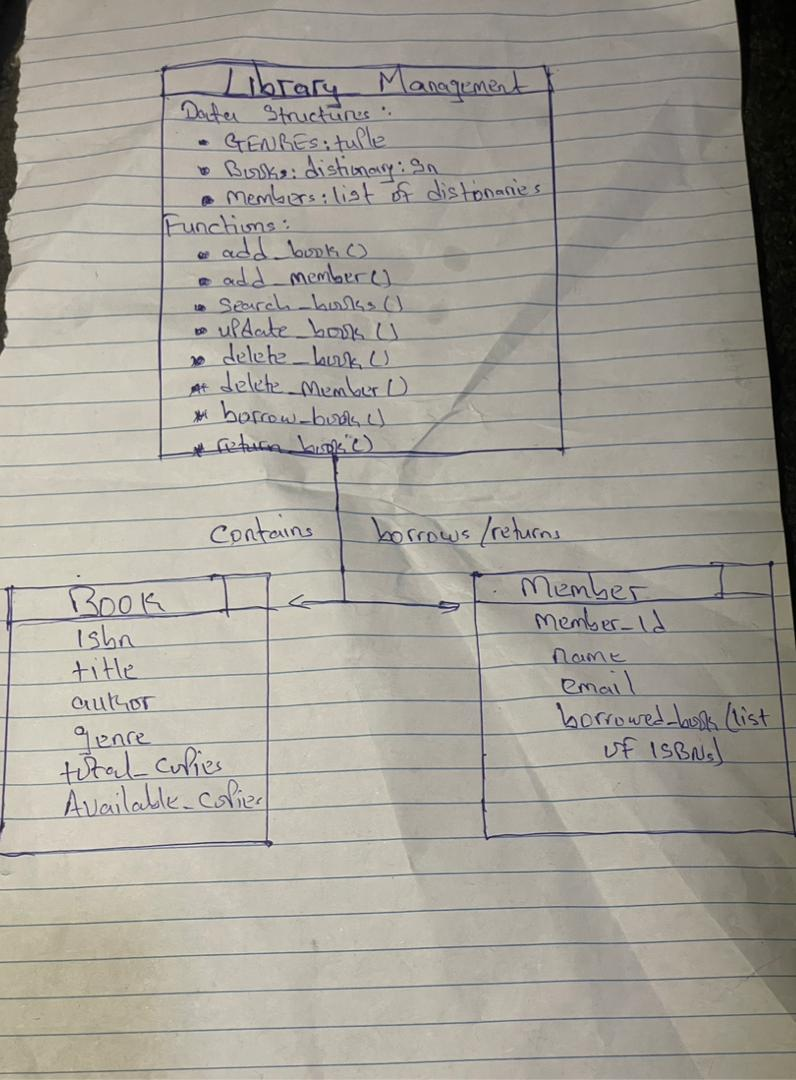 Library Management
Data Structures:
• GENRES: tuple
• Books: distionary: In
• Members: list of distonaries
Functions:
• add_book()
• add_member()
• Search_books()
• update_book()
• delete_book()
• delete_Member()
• borrow-book()
• return_book()
Contains borrows/returns
Book
Isbn
title
author
genre
total_copies
Available_copies
Member
Member_Id
name
email
borrowed_book (list
of ISBNs)